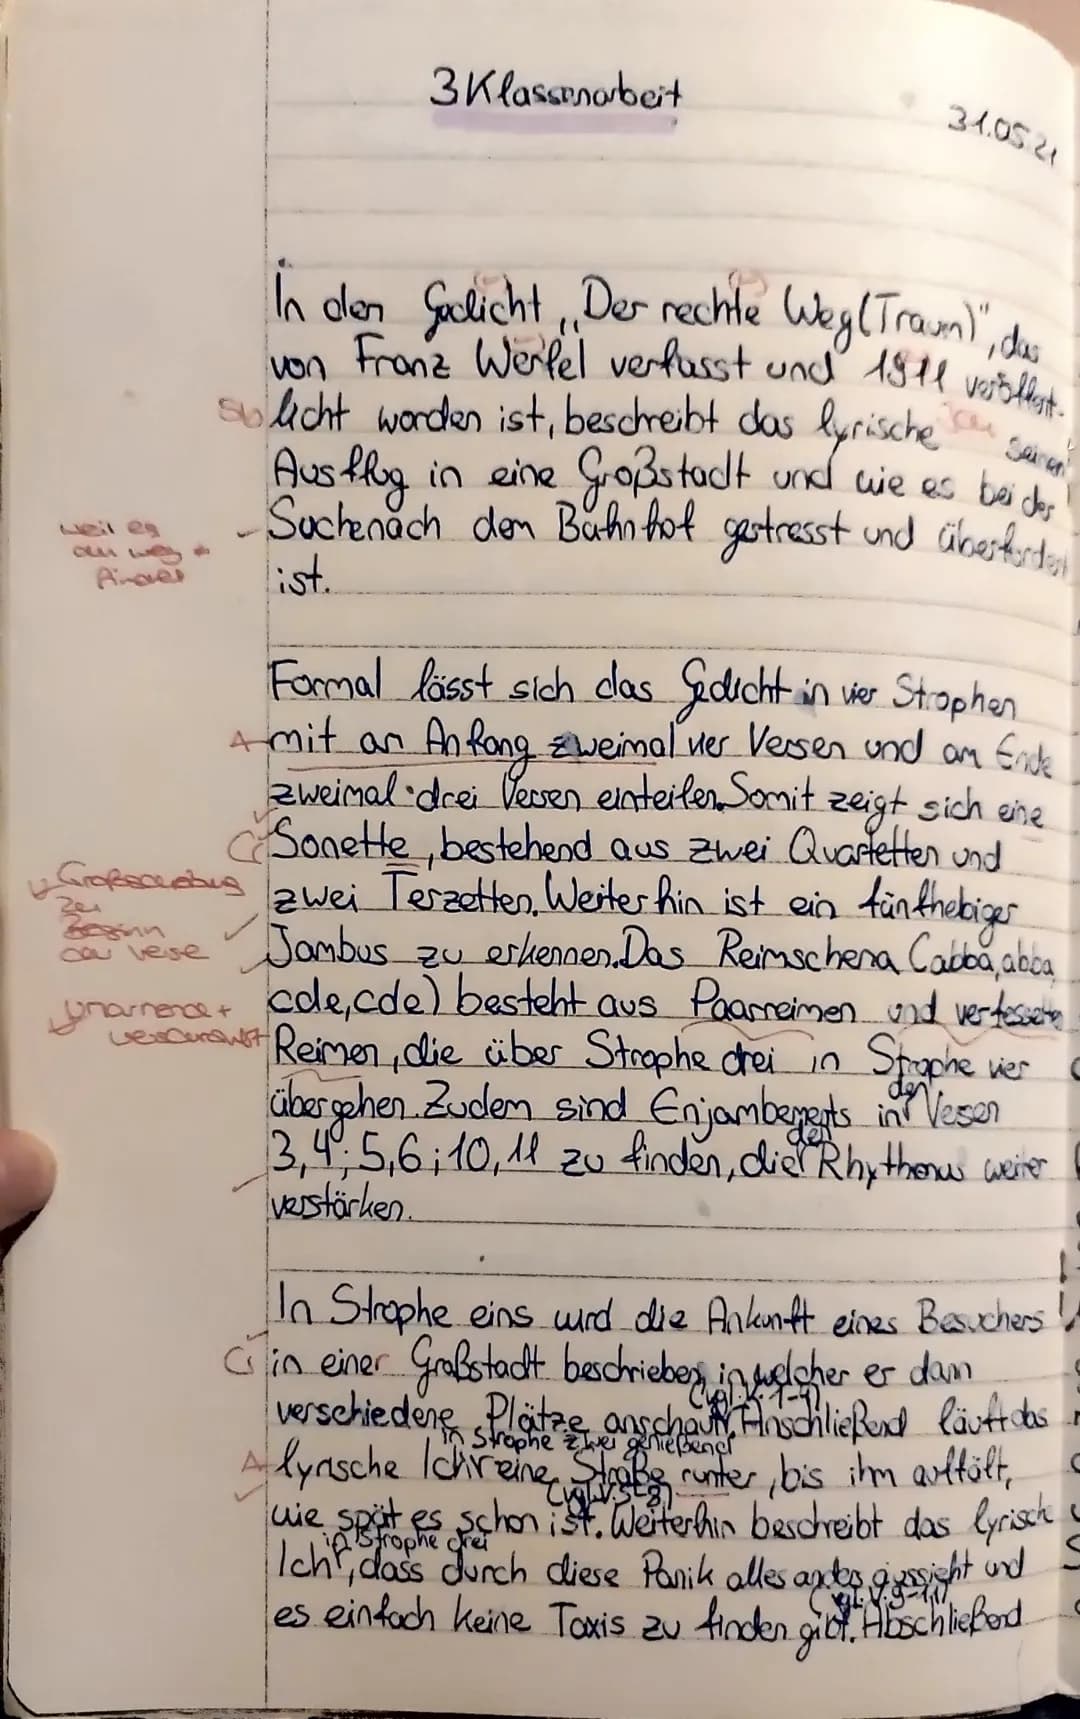 3 Klassenarbeit
31.05.21
In den Gedicht „Der rechte Weg (Traum)", das
von Franz Werfel verfasst und 1911 veröffent-
licht worden ist, beschreibt das lyrische Ich seinen
Ausflug in eine Großstadt und wie es bei der
weil es
den weg
findet
Suche nach dem Bahnhof gestresst und überfordert
ist.
Formal lässt sich das Gedicht in vier Strophen
A mit an Anfang zweimal vier Versen und am Ende
zweimal drei Versen einteilen. Somit zeigt sich eine
Sonette, bestehend aus zwei Quartetten und
zwei Terzetten. Weiterhin ist ein fünfhebiger
zu
Beginn
der Verse
Jambus zu erkennen. Das Reimschema (abba, abba,
cde, cde) besteht aus Paarreimen und
umarmende +
Reimen, die über Strophe drei in Strophe vier
übergehen. Zudem sind Enjambements in den Vesen
3,4; 5,6; 10,11 zu finden, die den Rhythmus weiter
verstärken.
In Strophe eins wird die Ankunft eines Besuchers
in einer Großstadt beschrieben, in welcher er dann
(vgl. V. 1-4)
verschiedene Plätze anschaut. Anschließend läuft das
in Strophe zwei genießend
A lyrische Ich eine Straße runter, bis ihm auffält,
(vgl. V. 5-8)
wie spät es schon ist. Weiterhin beschreibt das lyrisch
in Strophe drei
Ich, dass durch diese Panik alles anders aussieht und
(vgl. V. 9-11)
es einfach keine Taxis zu finden gibt. Abschließend